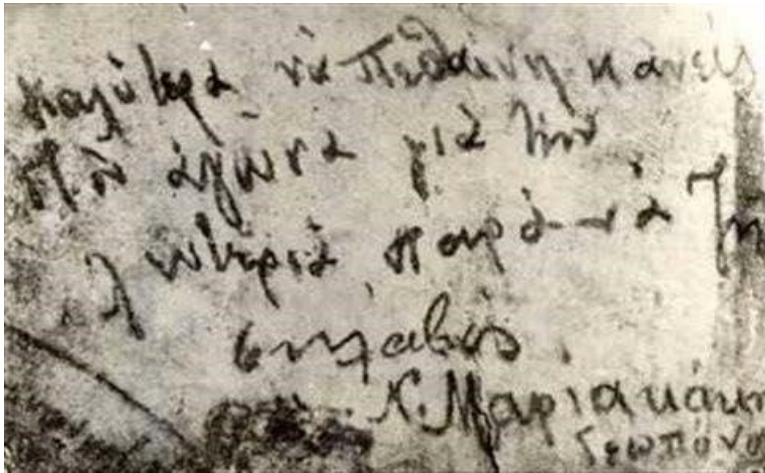 καλύτερα νὰ πεθαίνη κανείς
στὸν ἀγῶνα γιὰ τὴν
λευτεριὰ παρὰ νὰ ζῆ
σκλαβος.
Ν. Μαριακάκη
Γεωπόνο